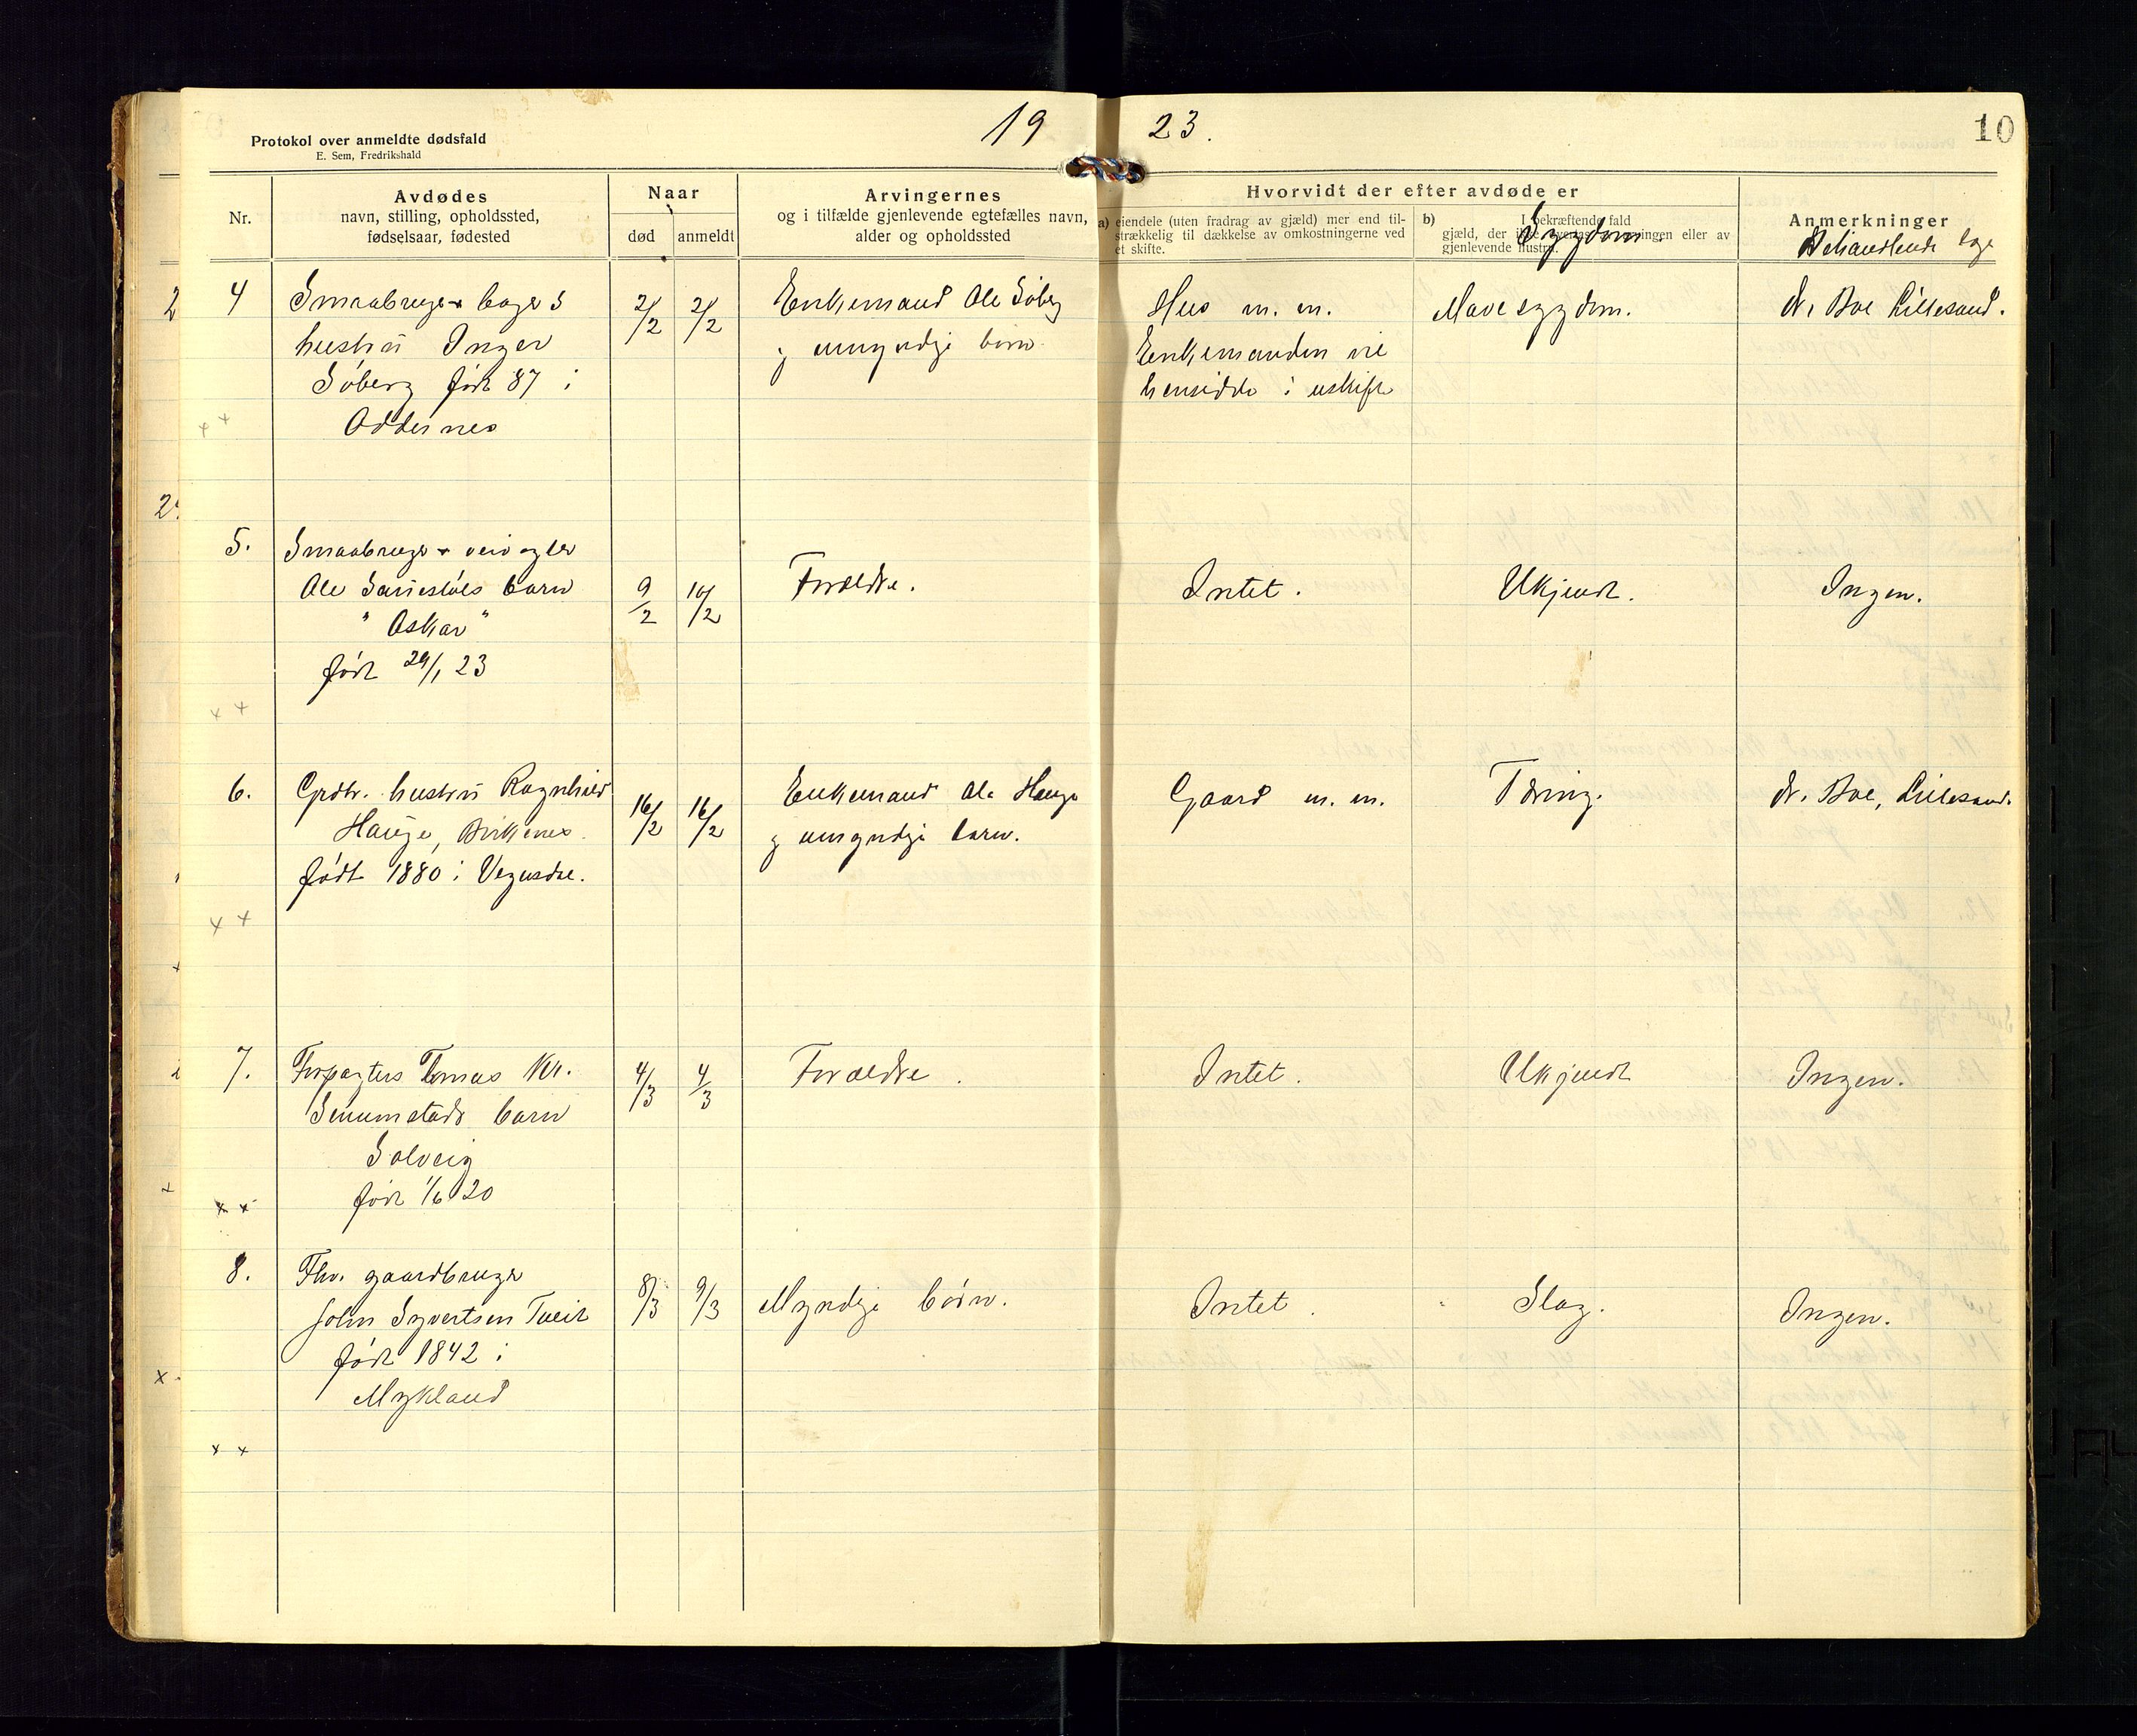 Protokol over anmeldte dødsfald
E. Sem, Fredrikshald
19 23.
10
Nr.
Avdødes
navn, stilling, opholdssted,
fødselsaar, fødested
Naar
død
anmeldt
Arvingernes
og i tilfælde gjenlevende egtefælles navn,
alder og opholdssted
Hvorvidt der efter avdøde er
a) eiendele (uten fradrag av gjæld) mer end til-
strækkelig til dækkelse av omkostningerne ved
et skifte.
b) I bekræftende fald
gjæld, der ikke overtas av arvingen eller av
gjenlevende hustru.
Sygdom.
Anmerkninger
Behandlende læge
4
Smaabruger & bagers
hustru Inger
Söberg född 87 i
Oddernes
2/2
2/2
Enkemand Ole Söberg
og umyndige börn
Hus m. m.
Enkemanden vil
hensidde i uskifte
Mavesygdom.
dr. Boe Lillesand.
5.
Smaabruger &
Ole barn
"Oskar"
född 29/1 23
9/2
10/2
Forældre.
Intet.
Ukjendt.
Ingen.
6.
Grdbr. hustru Ragnhild
Hauge, Birkenes.
födt 1880 i Vegusdre.
16/2
16/2
Enkemand Ole Hauge
og umyndige barn.
Gaard m. m.
Tæring.
dr. Boe, Lillesand.
7.
Forpagters Tomas Kr.
Senumstads barn
Solveig
född 1/6 20
4/3
4/3
Forældre.
Intet.
Ukjendt
Ingen.
8.
Fhv. gaardbruger
John Syvertsen Tveit
född 1842 i
Mykland
8/3
9/3
Myndige börn.
Intet.
Slag.
Ingen.